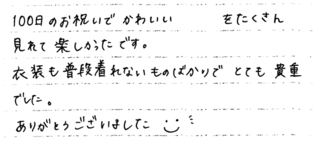 100日のお祝いで かわいい をたくさん
見れて 楽しかったです。
衣装も普段着れないものばかりで とても 貴重
でした。
ありがとうございました